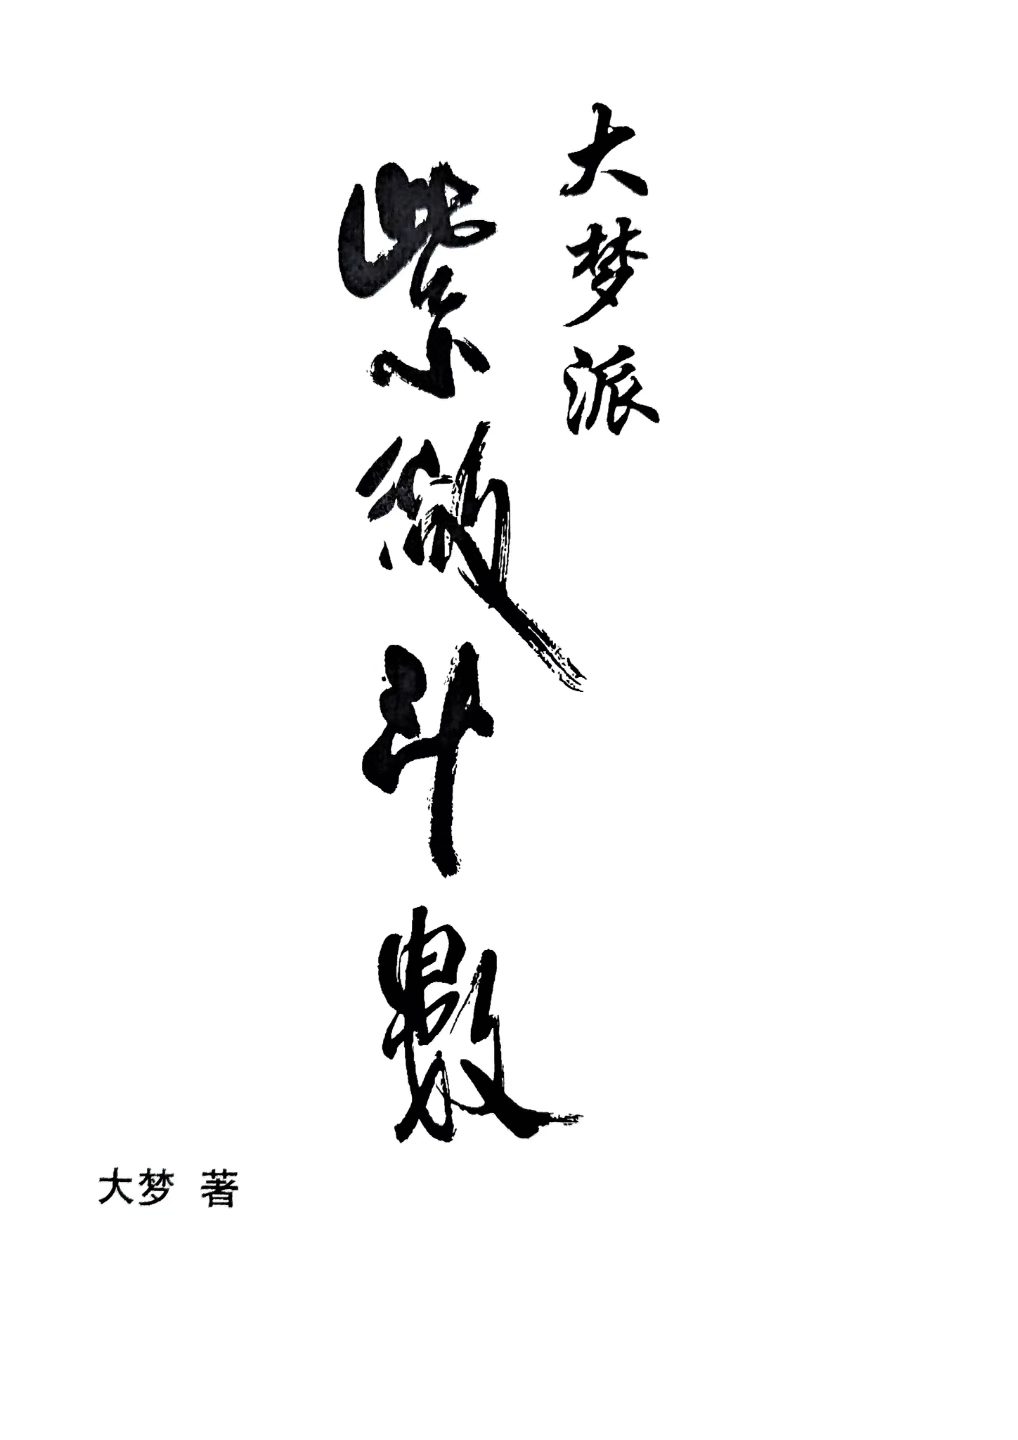 大梦派
紫微斗数
大梦 著